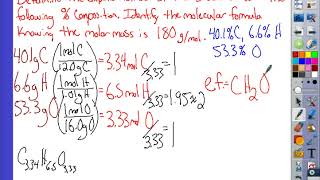 following % Composition. Identify the molecular formula
Knowing the molar mass is 180 g/mol. 40.1% C, 6.6% H
53.3% O
40.1gC (1mol C / 12.0gC) = 3.34 mol C / 3.33 = 1
6.6gH (1mol H / 1.01gH) = 6.5 mol H / 3.33 = 1.95 ≈ 2
53.3gO (1mol O / 16.0gO) = 3.33 mol O / 3.33 = 1
e.f. = CH₂O
C₃.₃₄H₆.₅O₃.₃₃